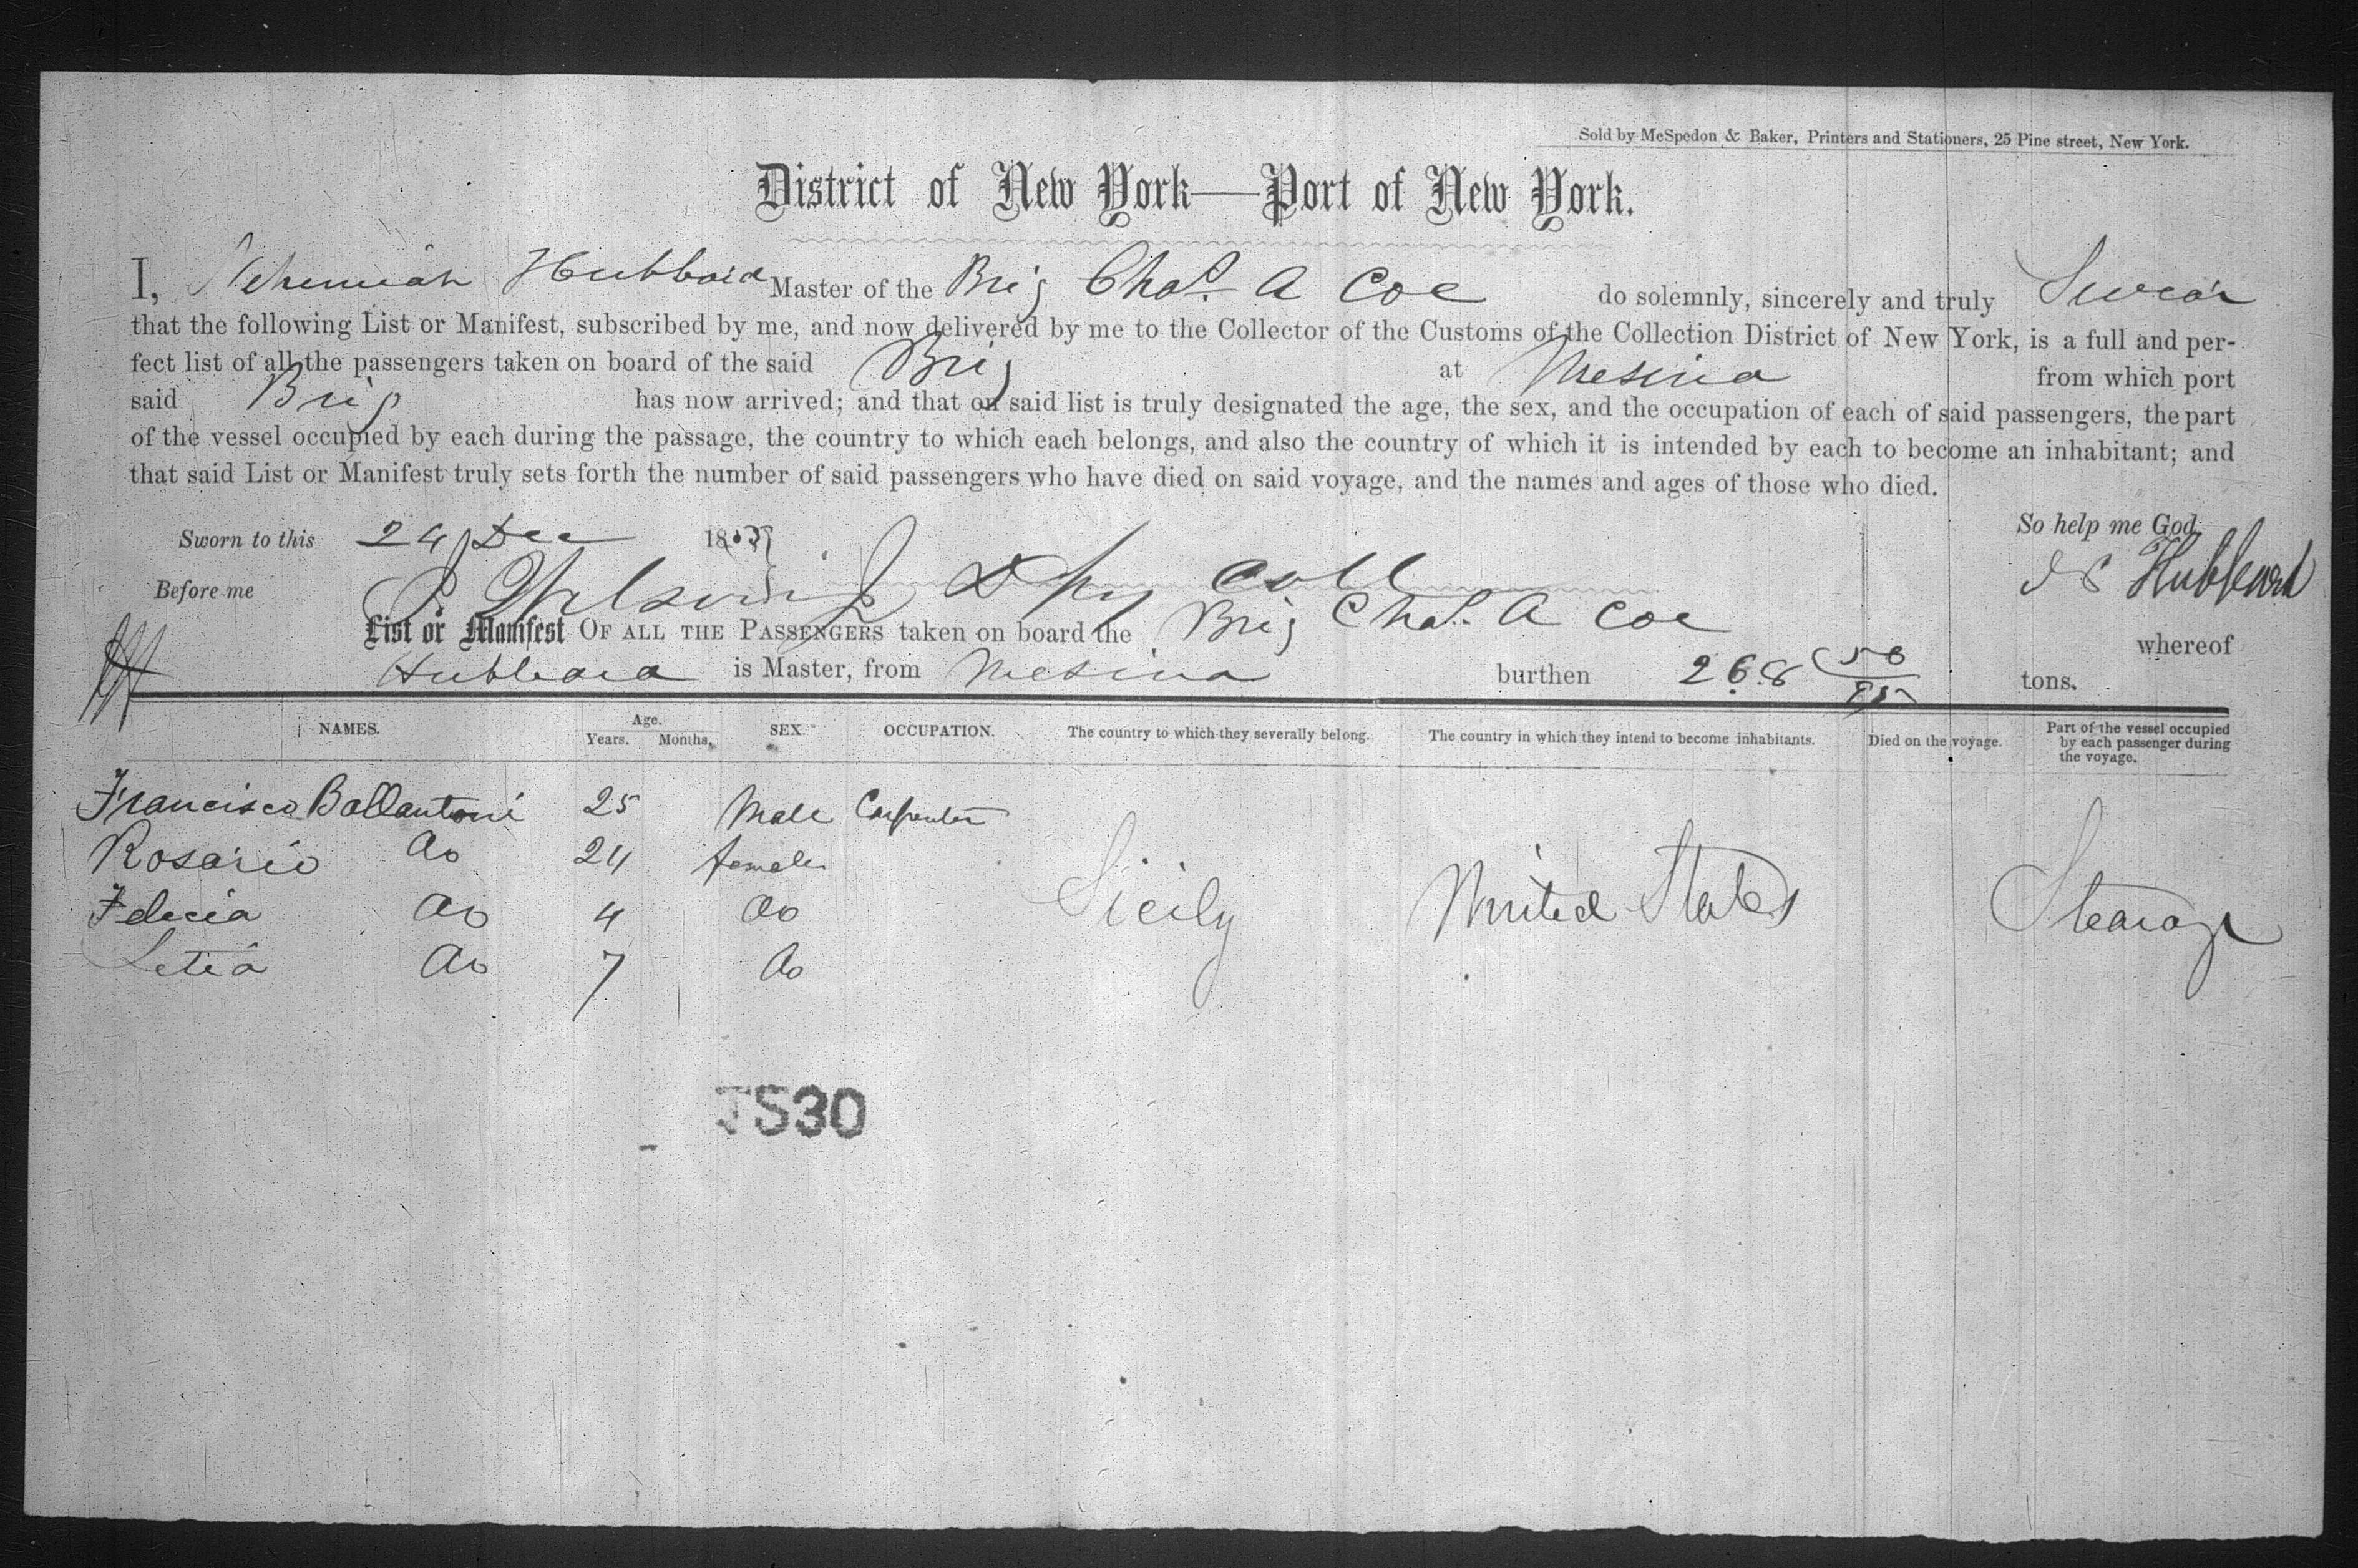 Sold by McSpedon & Baker, Printers and Stationers, 25 Pine street, New York.
District of New York—Port of New York.
I, Nehemiah Hubbard Master of the Brig Chas. A Coe do solemnly, sincerely and truly Swear
that the following List or Manifest, subscribed by me, and now delivered by me to the Collector of the Customs of the Collection District of New York, is a full and per-
fect list of all the passengers taken on board of the said Brig at Mesina from which port
said Brig has now arrived; and that on said list is truly designated the age, the sex, and the occupation of each of said passengers, the part
of the vessel occupied by each during the passage, the country to which each belongs, and also the country of which it is intended by each to become an inhabitant; and
that said List or Manifest truly sets forth the number of said passengers who have died on said voyage, and the names and ages of those who died.
Sworn to this 24 Dec 18 So help me God.
Before me Dpy Coll Hubbard
List or Manifest OF ALL THE PASSENGERS taken on board the Brig Chas. A Coe whereof
Hubbard is Master, from Mesina burthen 268 tons.
NAMES. Age. Years. Months. SEX. OCCUPATION. The country to which they severally belong. The country in which they intend to become inhabitants. Died on the voyage. Part of the vessel occupied by each passenger during the voyage.
Francisco Ballantoni 25 Male Carpenter
Rosario Do 24 female
Felicia Do 4 Do Sicily United States Stearage
Letia Do 7 Do
7530